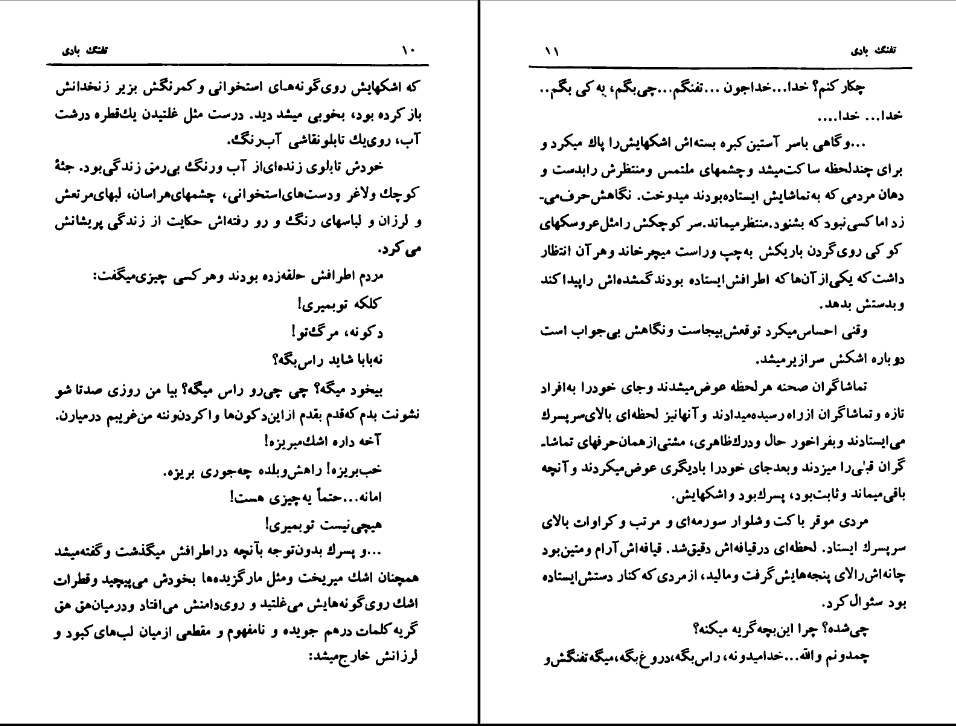 ۱۰ تفنگ بادی
که اشکهایش روی‌گونه‌های استخوانی و کمرنگش بزیر زنخدانش
باز کرده بود، بخوبی میشد دید. درست مثل غلتیدن یك‌قطره درشت
آب، روی‌یك تابلو‌نقاشی آب‌رنگ.
خودش تابلوی زنده‌ای‌از آب ورنگ بی‌رمق زندگی‌بود. جثهٔ
کوچك ولاغر ودست‌های‌استخوانی، چشمهای‌هراسان، لبهای‌مرتعش
و لرزان و لباسهای رنگ و رو رفته‌اش حکایت از زندگی پریشانش
می‌کرد.
مردم اطرافش حلقه‌زده بودند وهرکسی چیزی‌میگفت:
کلکه توبمیری!
دکونه، مرگ‌تو!
نه‌بابا شاید راس‌بگه؟
بیخود میگه؟ چی چی‌رو راس میگه؟ بیا من روزی صدتا شو
نشونت بدم که‌قدم بقدم ازاین‌دکون‌ها واکردن‌وننه من‌غریبم درمیارن.
آخه داره اشك‌میریزه!
خب‌بریزه! راهش‌وبلده چه‌جوری بریزه.
امانه...حتماً یه‌چیزی هست!
هیچی‌نیست توبمیری!
...و پسرك بدون‌توجه بآنچه دراطرافش میگذشت وگفته‌میشد
همچنان اشك میریخت ومثل مارگزیده‌ها بخودش می‌پیچید وقطرات
اشك روی‌گونه‌هایش می‌غلتید و روی‌دامنش می‌افتاد ودرمیان‌هق هق
گریه‌کلمات درهم جویده و نامفهوم و مقطعی ازمیان لب‌های‌کبود و
لرزانش خارج‌میشد:
تفنگ بادی ۱۱
چکارکنم؟ خدا...خداجون ...تفنگم...چی‌بگم، به کی بگم..
خدا... خدا....
...وگاهی باسر آستین‌کبره بسته‌اش اشکهایش‌را پاك میکرد و
برای چندلحظه ساکت‌میشد وچشمهای ملتمس ومنتظرش رابدست و
دهان مردمی که به‌تماشایش ایستاده‌بودند میدوخت. نگاهش حرف‌می‌ـ
زد اما کسی‌نبود که بشنود. منتظرمیماند. سرکوچکش رامثل عروسکهای
کوکی روی‌گردن باریکش به‌چپ وراست میچرخاند وهرآن انتظار
داشت‌که یکی‌ازآن‌ها که اطرافش‌ایستاده بودند گمشده‌اش راپیداکند
وبدستش بدهد.
وقتی احساس‌میکرد توقعش‌بیجاست ونگاهش بی‌جواب است
دوباره اشکش سرازیرمیشد.
تماشاگران صحنه هرلحظه عوض‌میشدند وجای خودرا به‌افراد
تازه و تماشاگران ازراه رسیده‌میدادند وآنهانیز لحظه‌ای بالای‌سرپسرك
می‌ایستادند وبفراخور حال ودرك‌ظاهری، مشتی‌ازهمان‌حرفهای تماشاـ
گران قبلی‌را میزدند وبعدجای خودرا بادیگری عوض‌میکردند وآنچه
باقی‌میماند وثابت‌بود، پسرك‌بود واشکهایش.
مردی موقر باکت وشلوار سورمه‌ای و مرتب وکراوات بالای
سرپسرك ایستاد. لحظه‌ای درقیافه‌اش دقیق‌شد. قیافه‌اش‌آرام ومتین‌بود
چانه‌اش‌رالای پنجه‌هایش‌گرفت ومالید، ازمردی که‌کنار دستش‌ایستاده
بود سئوال کرد.
چی‌شده؟ چرا این‌بچه‌گریه میکنه؟
چمدونم والله...خدامیدونه، راس‌بگه، دروغ‌بگه، میگه‌تفنگش‌و